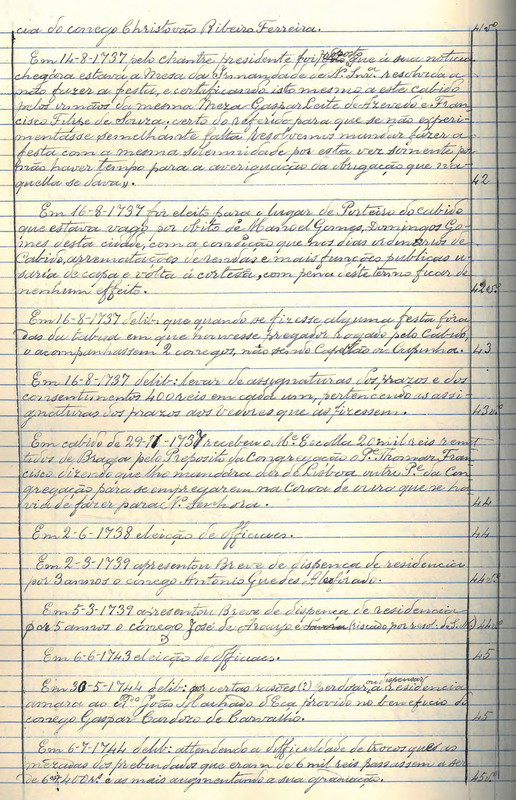 cia do conego Christovão Ribeiro Ferreira. 41vº
Em 14-8-1737 pelo chantre presidente foi proposto que á sua noticia
chegára estava a Meza da Irmandade de Nª Snrª resolvida a
não fazer a festa, e certificando isto mesmo a este cabido
pelos irmãos da mesma Meza Gaspar Leite de Azevedo e Fran-
cisco Filipe de Souza, certo do referido para que se não experi-
mentásse semelhante falta resolvemos mandar fazer a
festa com a mesma solemnidade por esta vez sómente por
não haver tempo para a averiguação da obrigação que n'a-
quella se dava. 42
Em 16-8-1737 foi eleito para o lugar de Porteiro do cabido
que estava vago por obito de Manoel Gomes, Domingos Go-
mes desta cidade, com a condição que nos dias ordinarios de
Cabido, arrematações de rendas e mais funções publicas u-
saria de capa e volta á cortezã, com pena deste termo ficar de
nenhum effeito. 42vº
Em 16-8-1737 delib. que quando se fizesse alguma festa fóra
das da tabua em que houvesse prégador rogado pelo Cabido,
o acompanhassem 2 conegos, não sendo Capitão ou
43
Em 16-8-1737 delib: levar de assignaturas dos prazos e dos
consentimentos 400 reis em cada um, pertencendo as assi-
gnaturas dos prazos aos Vedores que as fizessem. 43vº
Em cabido de 29-11-1737 recebeu o Mº Escolla 20 mil reis remet-
tidos de Braga pelo Preposito da Congregação o Pe. Thomaz Fran-
cisco dizendo que lho mandára dar de Lisboa outro Pe. da Con-
gregação para se empregarem na Coroa de ouro que se ha-
via de fazer para Nª Senhora. 44
Em 2-6-1738 eleição de officiaes. 44
Em 2-3-1739 apresentou Breve de dispença de residencia
por 3 annos o conego Antonio Guedes Alcoforado. 44vº
Em 5-3-1739 apresentou Breve de dispença de residencia
por 5 annos o conego José de Araujo e (riscado por resol. de S. M.) 44vº
Em 6-6-1743 eleição de officiaes. 45
Em 30-5-1744 delib: por certas rasões (2) perdoar, ou dispensar, a residencia
amara ao Rdo João Machado d'Eça provido no beneficio do
conego Gaspar Cardozo de Carvalho. 45
Em 6-7-1744 delib: attendendo a difficuldade de trocos que as
mezadas dos prebendados que eram de 6 mil reis passassem a ser
de 6400 rs. e as mais augmentando a sua graduação. 45vº